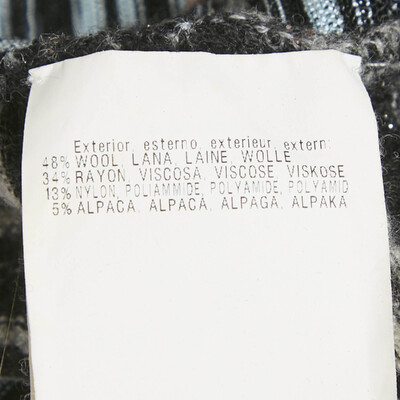 Exterior, esterno, exterieur, extern:
48% WOOL, LANA, LAINE, WOLLE
34% RAYON, VISCOSA, VISCOSE, VISKOSE
13% NYLON, POLIAMMIDE, POLYAMIDE, POLYAMID
5% ALPACA, ALPACA, ALPAGA, ALPAKA